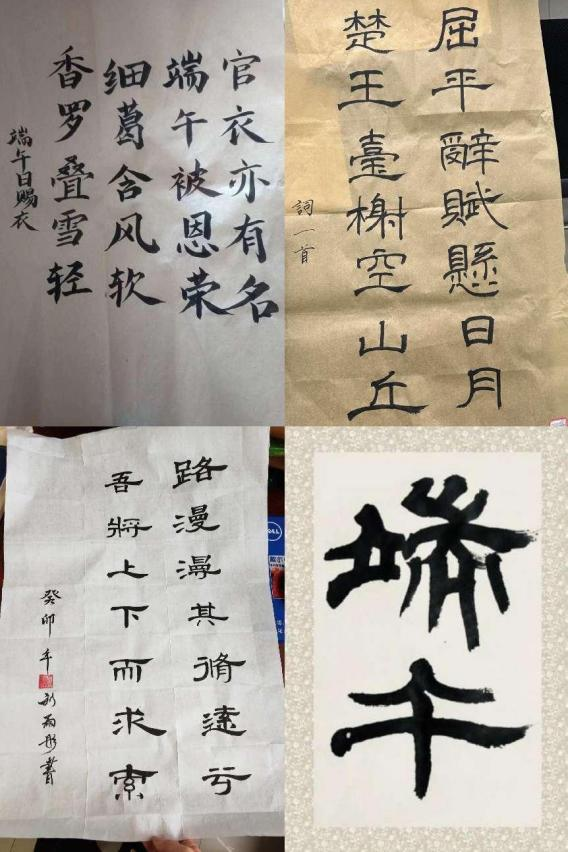 官衣亦有名
端午被恩荣
细葛含风软
香罗叠雪轻
端午日赐衣
屈平辭賦懸日月
楚王臺榭空山丘
詞一首
路漫漫其脩遠兮
吾將上下而求索
癸卯年
雨彤書
DELL
端午